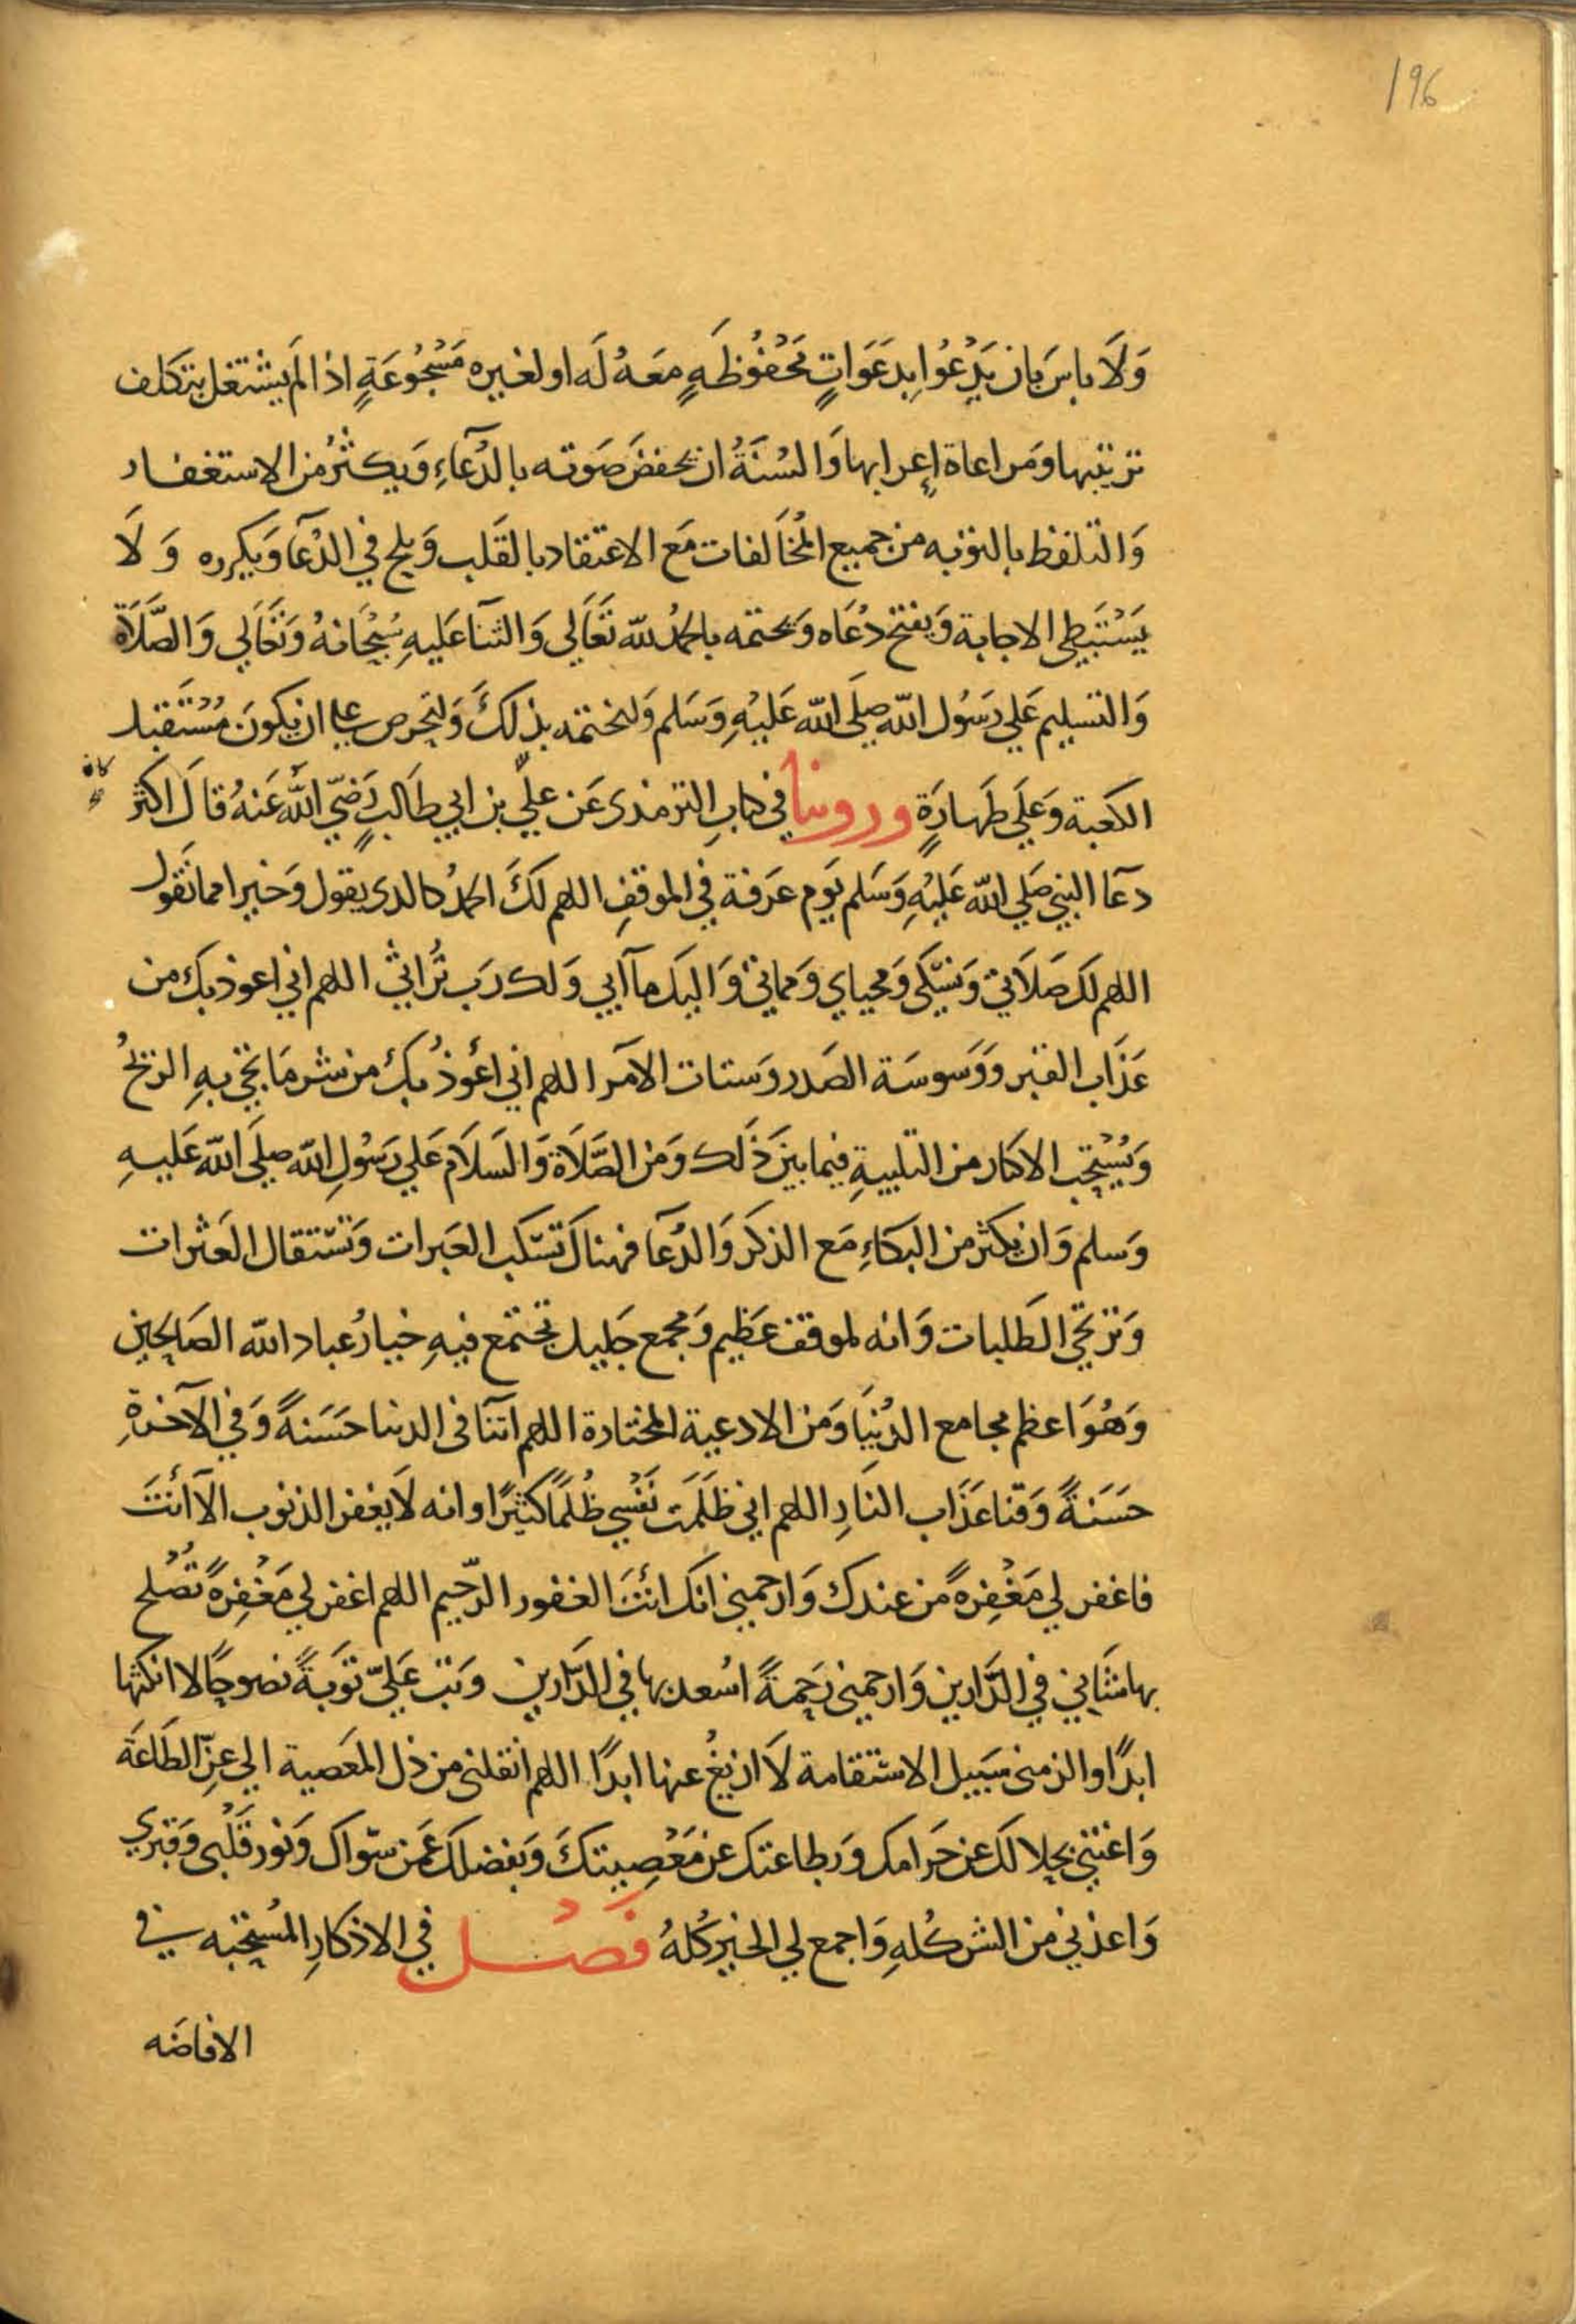 196
وَلَا باسَ بَان يَدْعُوا بِدعَوَاتٍ مَحْفُوُظَهٍ مَعَهُ لَه او لغيره مَسْجُوُعَةٍ اذا لَم يشتغل بتكلف
ترتيبها ومَراعاة إعرابها وَالسُنَةُ ان يخفضَ صَوته بالدُعَآءِ وَيكثرُ من الاستغفار
وَالتلفظ بالتوبه من جميع المُخَالفات مَع الاعتقاد بالقَلب وَيلح في الدُعَآ وَيكرره وَلَا
يَسْتَبَطِى الاجابة وَيفتح دُعَاه وَيختمه بالحمدُ لله تَعَالَي وَالثنآ عَليهِ سُبْحَانهُ وَتعَالَي وَالصَّلَاة
وَالتسليم عَلي رَسُول الله صلي الله عَليْهِ وَسَلم وَليختمه بذلكَ وَليحرص على ان يكونَ مُسْتَقبل
الكعَبة وَعَلي طَهارَةٍ وروينا في كتابِ الترمذى عَن عليّ بن ابي طَالبٍ رَضيّ اللهُ عَنهُ قالَ اكثر
كان
دعَآ النبي صَلي الله عَليْهِ وَسَلم يَوم عَرَفة في الموقفِ اللهم لكَ الحمدُ كالدى يقول وَخيرا مما نقَول
اللهم لكَ صَلَاتي وَنسكى وَمحياي وَمماتي وَاليك مآابي وَلك رَب تُراثي اللهم اني اعوذ بك من
عَذَاب القبر وَوَسوسَة الصَدر وَستات الامَر اللهم اني اعُوذُ بك من شر مَا تجي بهِ الريحُ
وَيُسْتَحِب الاكثار من التلبيةِ فيما بينَ ذَلك وَمن الصَّلَاة وَالسَلَام عَلي رَسُولِ الله صلي الله عَليهِ
وَسلم وَان يكثر من البكَاءِ مَع الذكَر وَالدُعَآ فهناكَ تسَكب العبَرات وَتسْتقال العَثرات
وَترتجَي الطَلبات وَانه لموقف عَظيم وَمجمع جَليل تجتمع فيهِ خيارُ عباد الله الصَالحين
وَهُوَ اعظم مجامع الدُنيَا وَمن الادعية المختارة اللهم اتنآ فى الدنيا حَسَنةً وَفي الآخرةِ
حَسَنةً وَقنا عَذَاب النَارِ اللهم اني ظَلَمَت نَفْسِي ظُلمًا كَثيرًا وانه لَا يَغفر الذنوب الآ أنتَ
فاغفر لي مَغْفِرةً من عندك وَارحمني انك انتَ الغفور الرّحيم اللهم اغفر لي مَغْفِرةً تُصْلح
بها شَاني في الدَّارين وَارحمني رَحِمةً اسْعد بها في الدَّارين وَتب عَليّ تَوبَةً نصوحًا لا انكثها
ابدًا والزمنى سَبيل الاسْتقامة لَا ازيغُ عنها ابدًا اللهم انقلنى من ذل المعَصية الي عِزّ الطَاعَة
وَاغنني بحلالكَ عن حَرامك وَبطاعتك عن مَعْصِيتكَ وَبفضلكَ عَمَن سّواك وَنور قَلْبى وَقبري
وَاعذني من الشر كُلهِ وَاجمع لي الخير كُلهُ فَصْل في الاذكارِ المُستحبَه في
الافاضَه